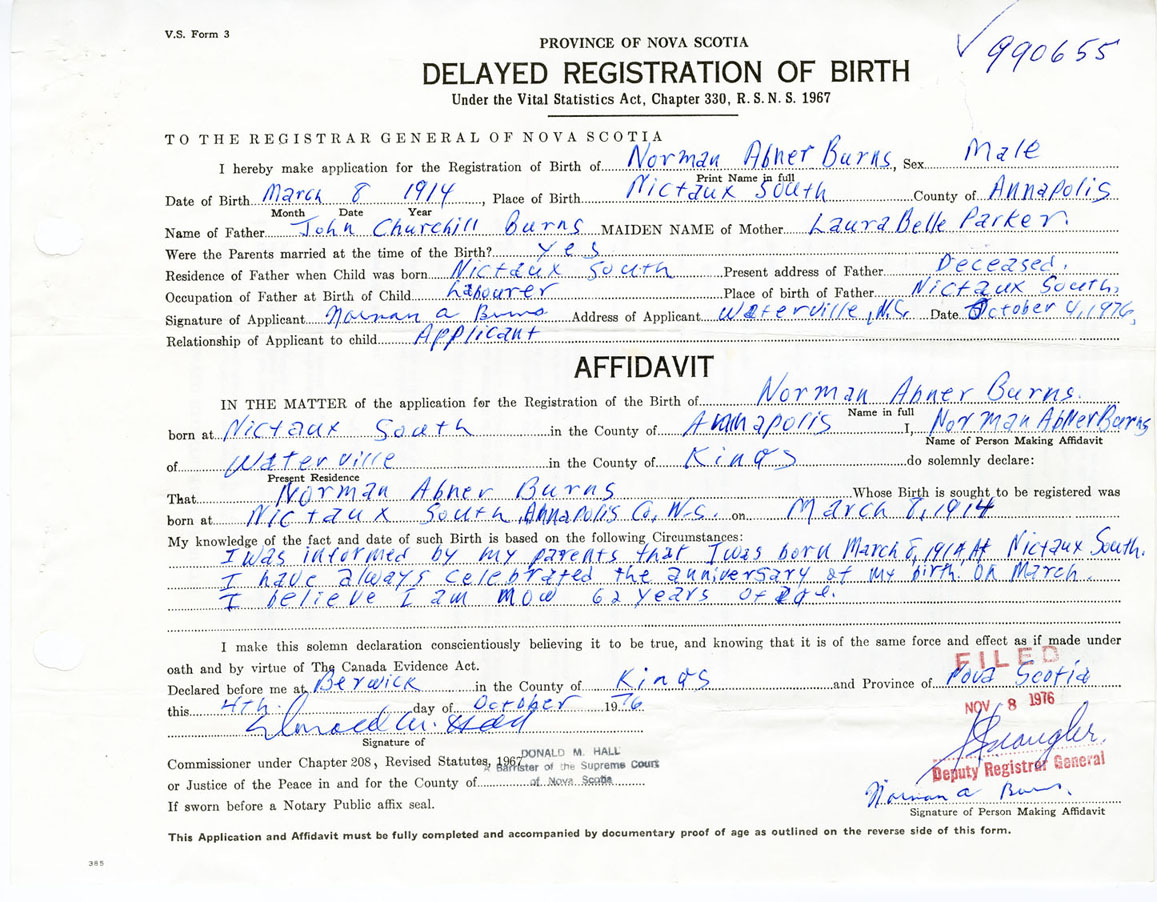 V.S. Form 3
990655
PROVINCE OF NOVA SCOTIA
DELAYED REGISTRATION OF BIRTH
Under the Vital Statistics Act, Chapter 330, R.S.N.S. 1967
TO THE REGISTRAR GENERAL OF NOVA SCOTIA
I hereby make application for the Registration of Birth of Norman Abner Burns, Sex Male
Print Name in full
Date of Birth March 8 1914, Place of Birth Nictaux South County of Annapolis
Month Date Year
Name of Father John Churchill Burns MAIDEN NAME of Mother Laura Belle Parker.
Were the Parents married at the time of the Birth? Yes
Residence of Father when Child was born Nictaux South Present address of Father Deceased.
Occupation of Father at Birth of Child Labourer Place of birth of Father Nictaux South.
Signature of Applicant Norman A Burns Address of Applicant Waterville, N.S. Date October 4, 1976,
Relationship of Applicant to child Applicant
AFFIDAVIT
IN THE MATTER of the application for the Registration of the Birth of Norman Abner Burns.
Name in full
born at Nictaux South in the County of Annapolis I, Norman Abner Burns
Name of Person Making Affidavit
of Waterville in the County of Kings do solemnly declare:
Present Residence
That Norman Abner Burns Whose Birth is sought to be registered was
born at Nictaux South, Annapolis Co, N.S. on March 8, 1914
My knowledge of the fact and date of such Birth is based on the following Circumstances:
I was informed by my parents that I was born March 8, 1914 At Nictaux South.
I have always celebrated the anniversary of my birth on March.
I believe I am now 62 years of age.
I make this solemn declaration conscientiously believing it to be true, and knowing that it is of the same force and effect as if made under
oath and by virtue of The Canada Evidence Act.
FILED
Declared before me at Berwick in the County of Kings and Province of Nova Scotia
this 4th. day of October 1976
NOV 8 1976
Signature of
Commissioner under Chapter 208, Revised Statutes, 1967
DONALD M. HALL
A Barrister of the Supreme Court
or Justice of the Peace in and for the County of
of Nova Scotia
Deputy Registrar General
If sworn before a Notary Public affix seal.
Norman A Burns.
Signature of Person Making Affidavit
This Application and Affidavit must be fully completed and accompanied by documentary proof of age as outlined on the reverse side of this form.
385